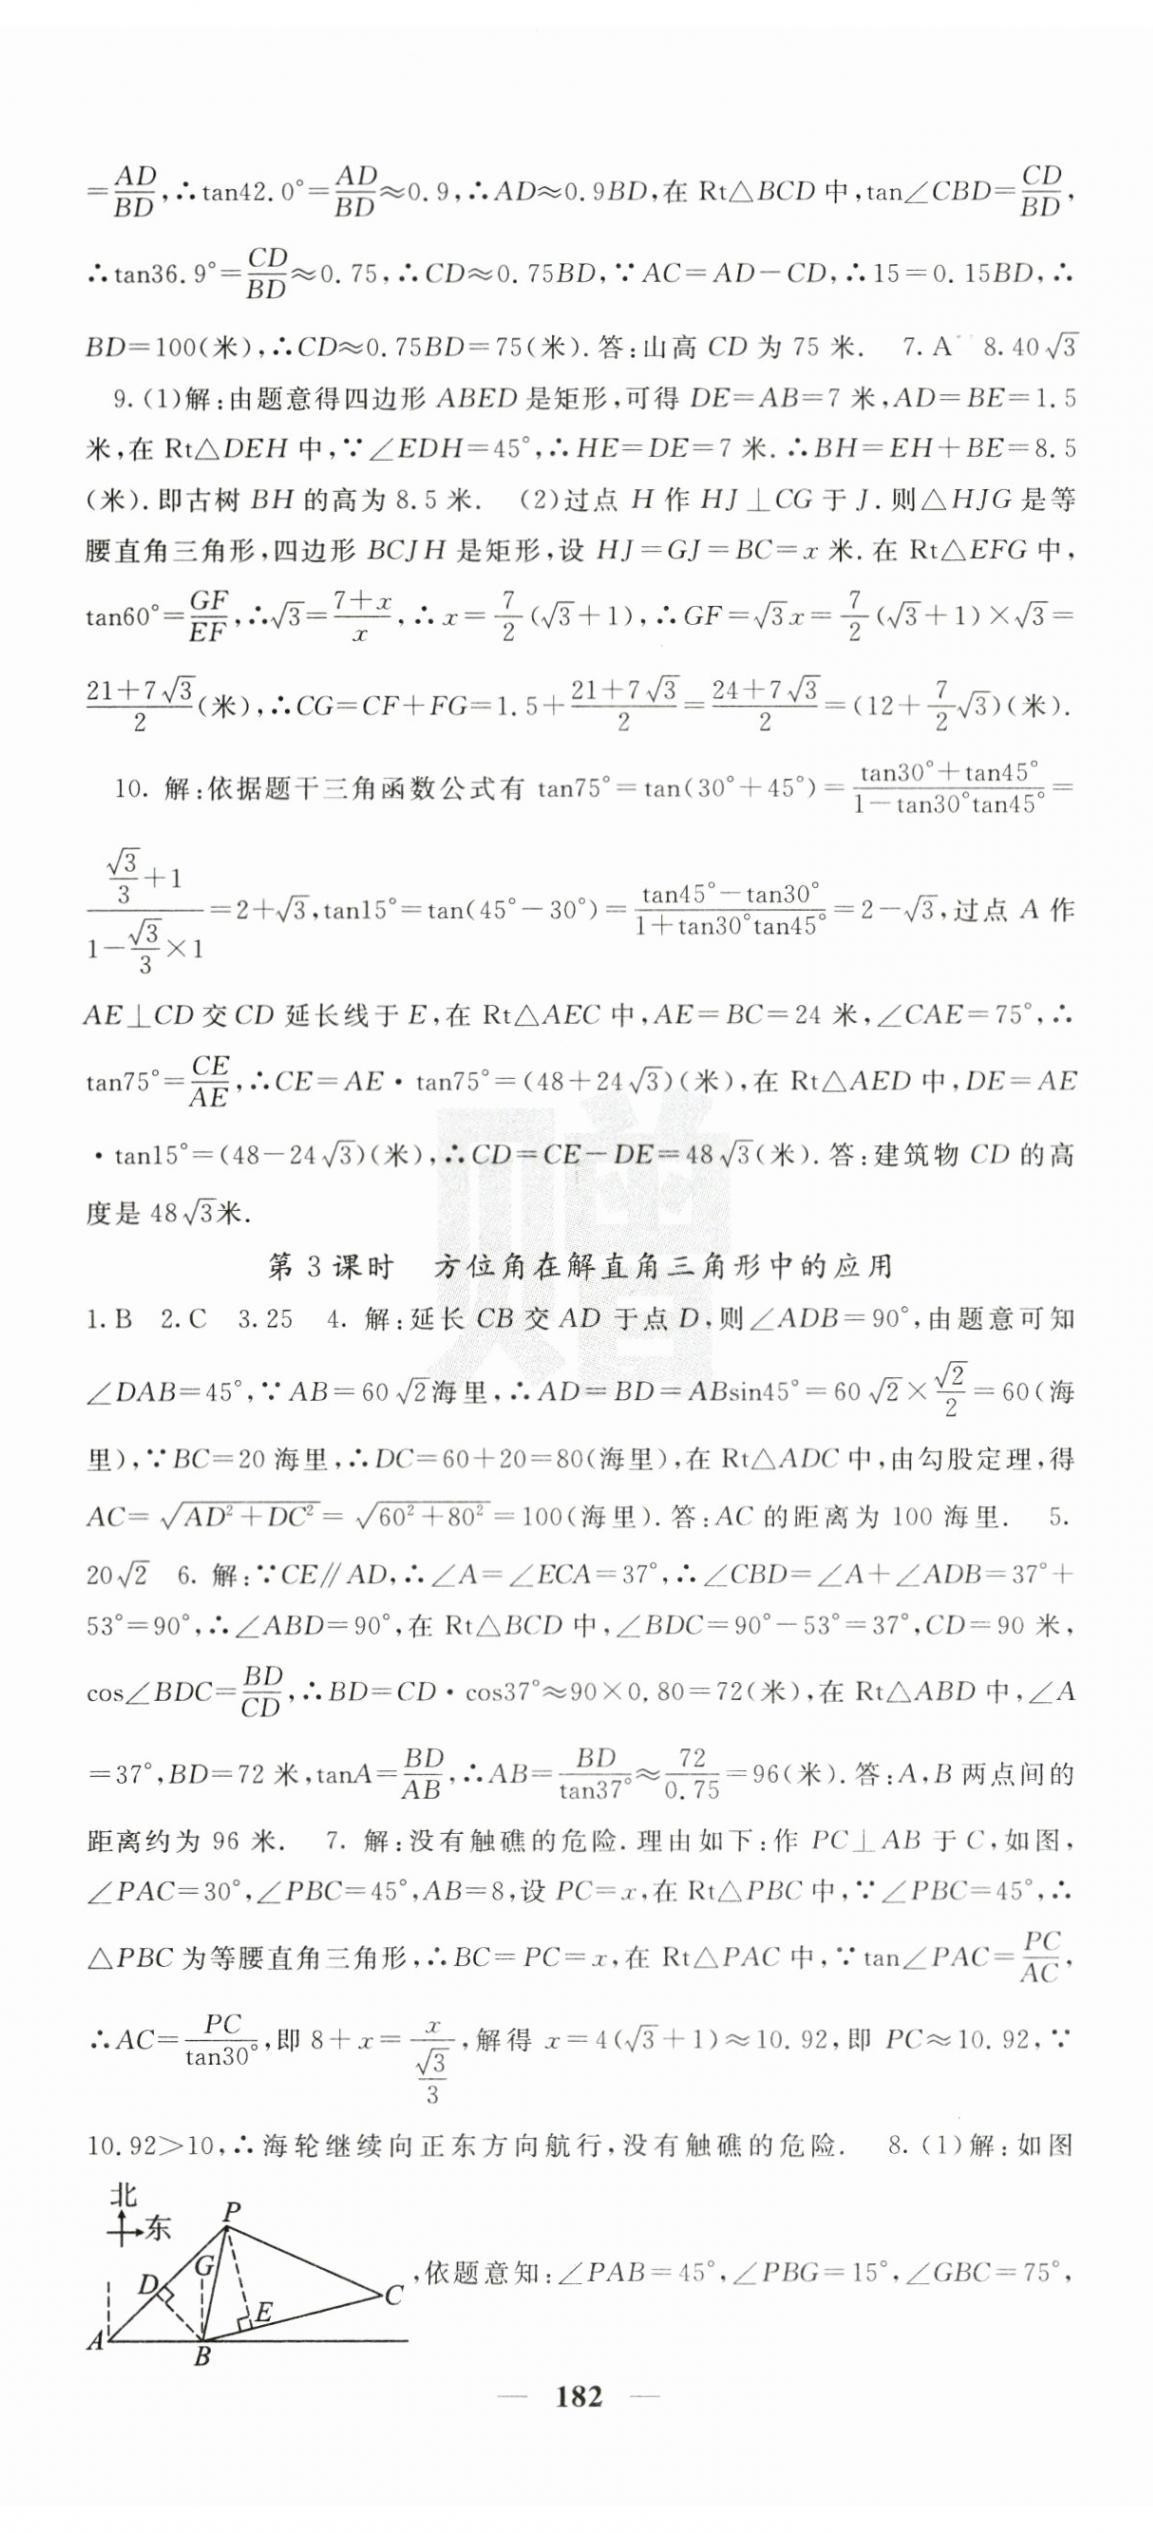 =AD/BD,∴tan42.0°=AD/BD≈0.9,∴AD≈0.9BD,在 Rt△BCD 中,tan∠CBD=CD/BD,
∴tan36.9°=CD/BD≈0.75,∴CD≈0.75BD,∵AC=AD-CD,∴15=0.15BD,∴
BD=100(米),∴CD≈0.75BD=75(米).答:山高 CD 为 75 米. 7.A 8.40√3
9.(1)解:由题意得四边形 ABED 是矩形,可得 DE=AB=7 米,AD=BE=1.5
米,在 Rt△DEH 中,∵∠EDH=45°,∴HE=DE=7 米.∴BH=EH+BE=8.5
(米).即古树 BH 的高为 8.5 米. (2)过点 H 作 HJ⊥CG 于 J.则△HJG 是等
腰直角三角形,四边形 BCJH 是矩形,设 HJ=GJ=BC=x 米.在 Rt△EFG 中,
tan60°=GF/EF,∴√3=(7+x)/x,∴x=7/2(√3+1),∴GF=√3x=7/2(√3+1)×√3=
(21+7√3)/2(米),∴CG=CF+FG=1.5+(21+7√3)/2=(24+7√3)/2=(12+7/2√3)(米).
10. 解:依据题干三角函数公式有 tan75°=tan(30°+45°)=(tan30°+tan45°)/(1-tan30°tan45°)=
(√3/3+1)/(1-√3/3×1)=2+√3,tan15°=tan(45°-30°)=(tan45°-tan30°)/(1+tan30°tan45°)=2-√3,过点 A 作
AE⊥CD 交 CD 延长线于 E,在 Rt△AEC 中,AE=BC=24 米,∠CAE=75°,∴
tan75°=CE/AE,∴CE=AE·tan75°=(48+24√3)(米),在 Rt△AED 中,DE=AE
·tan15°=(48-24√3)(米),∴CD=CE-DE=48√3(米).答:建筑物 CD 的高
度是 48√3米.
第 3 课时 方位角在解直角三角形中的应用
1.B 2.C 3.25 4. 解:延长 CB 交 AD 于点 D,则∠ADB=90°,由题意可知
∠DAB=45°,∵AB=60√2海里,∴AD=BD=ABsin45°=60√2×√2/2=60(海
里),∵BC=20 海里,∴DC=60+20=80(海里),在 Rt△ADC 中,由勾股定理,得
AC=√(AD²+DC²)=√(60²+80²)=100(海里).答:AC 的距离为 100 海里. 5.
20√2 6. 解:∵CE∥AD,∴∠A=∠ECA=37°,∴∠CBD=∠A+∠ADB=37°+
53°=90°,∴∠ABD=90°,在 Rt△BCD 中,∠BDC=90°-53°=37°,CD=90 米,
cos∠BDC=BD/CD,∴BD=CD·cos37°≈90×0.80=72(米),在 Rt△ABD 中,∠A
=37°,BD=72 米,tanA=BD/AB,∴AB=BD/tan37°≈72/0.75=96(米).答:A,B 两点间的
距离约为 96 米. 7. 解:没有触礁的危险.理由如下:作 PC⊥AB 于 C,如图,
∠PAC=30°,∠PBC=45°,AB=8,设 PC=x,在 Rt△PBC 中,∵∠PBC=45°,∴
△PBC 为等腰直角三角形,∴BC=PC=x,在 Rt△PAC 中,∵tan∠PAC=PC/AC,
∴AC=PC/tan30°,即 8+x=x/(√3/3),解得 x=4(√3+1)≈10.92,即 PC≈10.92,∵
10.92>10,∴海轮继续向正东方向航行,没有触礁的危险. 8.(1)解:如图
北
东
P
D
G
C
E
A
B
,依题意知:∠PAB=45°,∠PBG=15°,∠GBC=75°,
— 182 —
赠